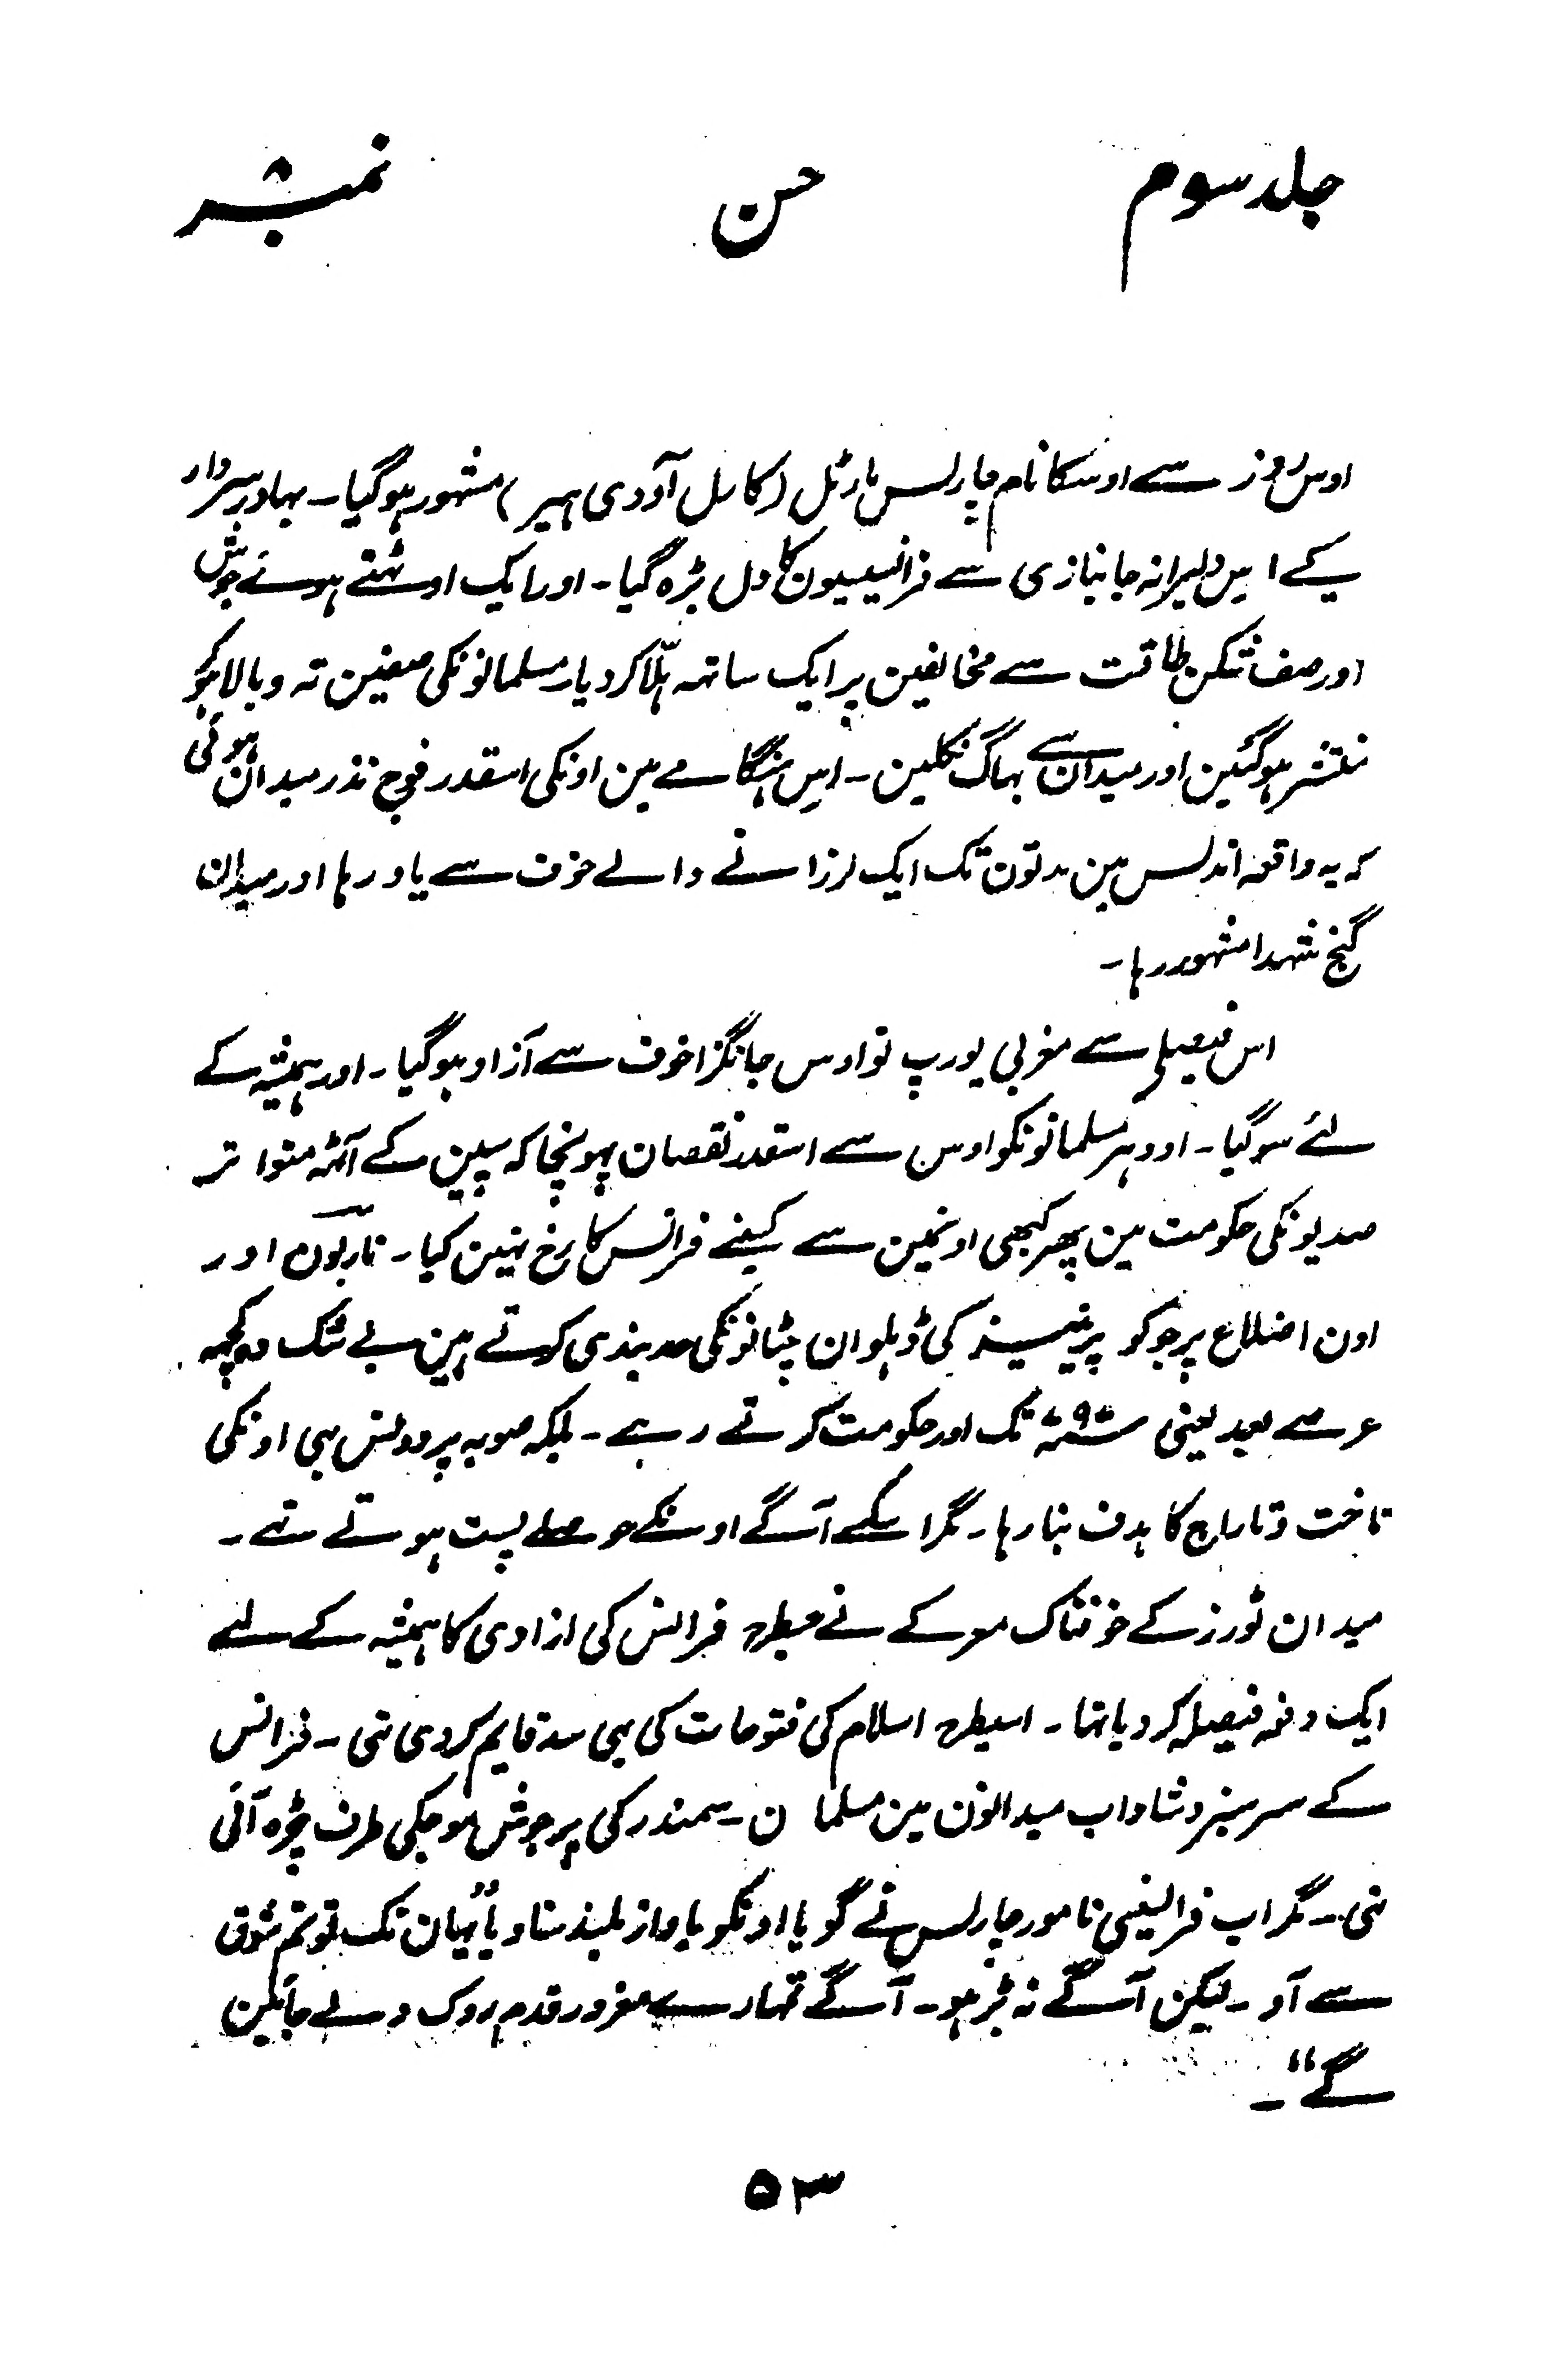 جلد سوم
حسن
نمبر ۸
اوس روز سے اوسکا نام چارلس مارٹل (کارل آوو دی ہیمر) مشہور ہوگیا۔ بہادر سردار
کے اس دلیرانہ جانبازی سے فرانسیسیون کا دل بڑہ گیا۔ اور ایک اوٹہتے ہوئے جوش
اور صف شکن طاقت سے مخالفین پر ایک ساتہہ ہلّا کر دیا۔ مسلمانونکی صفین تہ و بالا ہو کر
منتشر ہوگئین اور میدان سے بہاگ نکلین۔ اس ہنگامے مین اونکی اسقدر فوج نذر میدان ہوئی
کہ یہ واقعہ اندلس مین مدتون تک ایک لرزا نے والے خوف سے یاد رہا اور میدان
گنج شہدا مشہور رہا۔
اس فیصلے سے مغربی یورپ تو اوس جانگزا خوف سے آزاد ہوگیا۔ اور ہمیشہ کے
لئے سوگیا۔ اودہر مسلمانونکو اوس سے اسقدر نقصان پہونچا کہ سپین کے آٹہہ متواتر
صدیونکی حکومت مین پھر کبھی اونمین سے کسینے فرانس کا رخ نہین کیا۔ ناربون اور
اون اضلاع پر جو کو پرینیز کی ڈہلوان چٹانونکی حد بندی کرتے ہین بے شک وہ کچہہ
عرصے بعد یعنی ۷۹۷ء تک اور حکومت کرتے رہے۔ بلکہ صوبہ پروونس بہی اونکی
تاخت و تاراج کا ہدف بنا رہا۔ مگر اسکے آگے اونکے حوصلے پست ہوتے تہے۔
میدان ٹورز کے خوفناک معرکے نے جسطرح فرانس کی ازادی کا ہمیشہ کے لئے
ایک دفعہ فیصلہ کر دیا تہا۔ اسیطرح اسلام کی فتوحات کی بہی حد قایم کر دی تہی۔ فرانس
کے سرسبز و شاداب میدانون مین مسلمان۔ سمندر کی پرجوش موجکی طرف چڑہ آئی
تہی۔ مگر اب فرانسیسی نامور چارلس نے گویا اونکو باواز بلند سنا دیا "یہان تک تو تم شوق
سے آو۔ لیکن آگے نہ بڑہو۔ آگے تمہارے مغرور قدم روک دئے جائین
گے"۔
۵۳